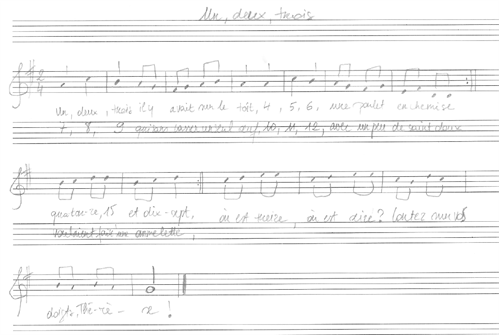 Un, deux, trois
Un, deux, trois il y avait sur le toit, 4, 5, 6, une poulet en chemise
7, 8, 9 qui sans un œuf, 10, 11, 12, avec un peu de saint doux
quatorze, 15 et dix-sept, où est treize, où est dix? Contez sur vos
voulaient faire omelette,
doigts, Thé-rè-se!